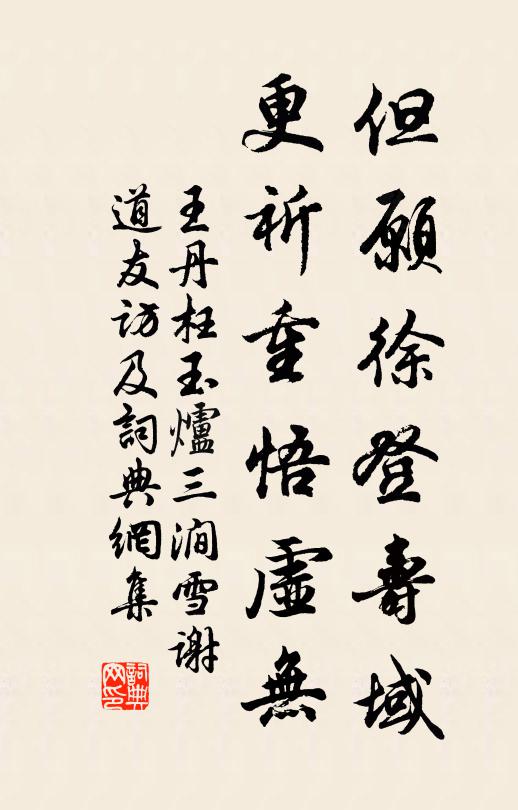 但願徐登壽域
更祈重悟虛無
王丹枉玉爐三澗雪謝
道友訪及詞典網集
詞典
网印